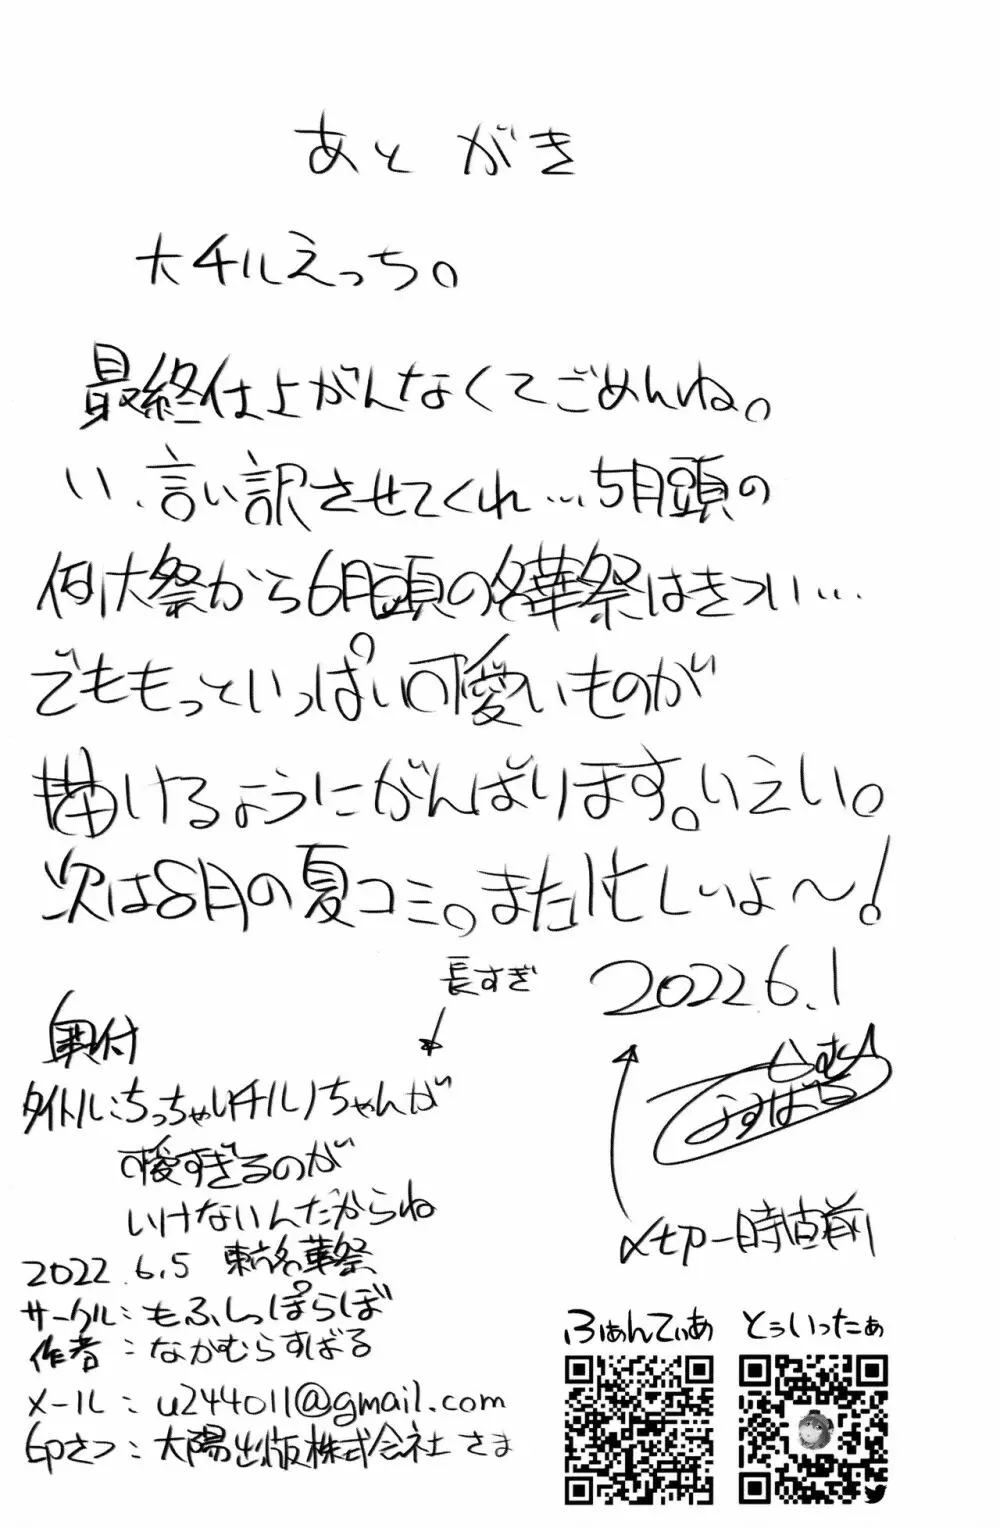 あとがき
大チルえっち。
最終仕上がんなくてごめんね。
い、言い訳させてくれ…5月頭の
例大祭から6月頭の名華祭はきつい…
でももっといっぱい可愛いものが
描けるようにがんばります。いえい。
次は8月の夏コミ。また忙しいよ〜!
2022 6.1
長すぎ
奥付
タイトル:ちっちゃいチルノちゃんが
可愛すぎるのが
いけないんだからね
2022.6.5 東方名華祭
サークル:もふしっぽらぼ
作者:なかむらすばる
メール:u244011@gmail.com
印さつ:大陽出版株式会社さま
なかむら
すばる
〆切一時直前
ふぁんてぃあ
とぅいったぁ